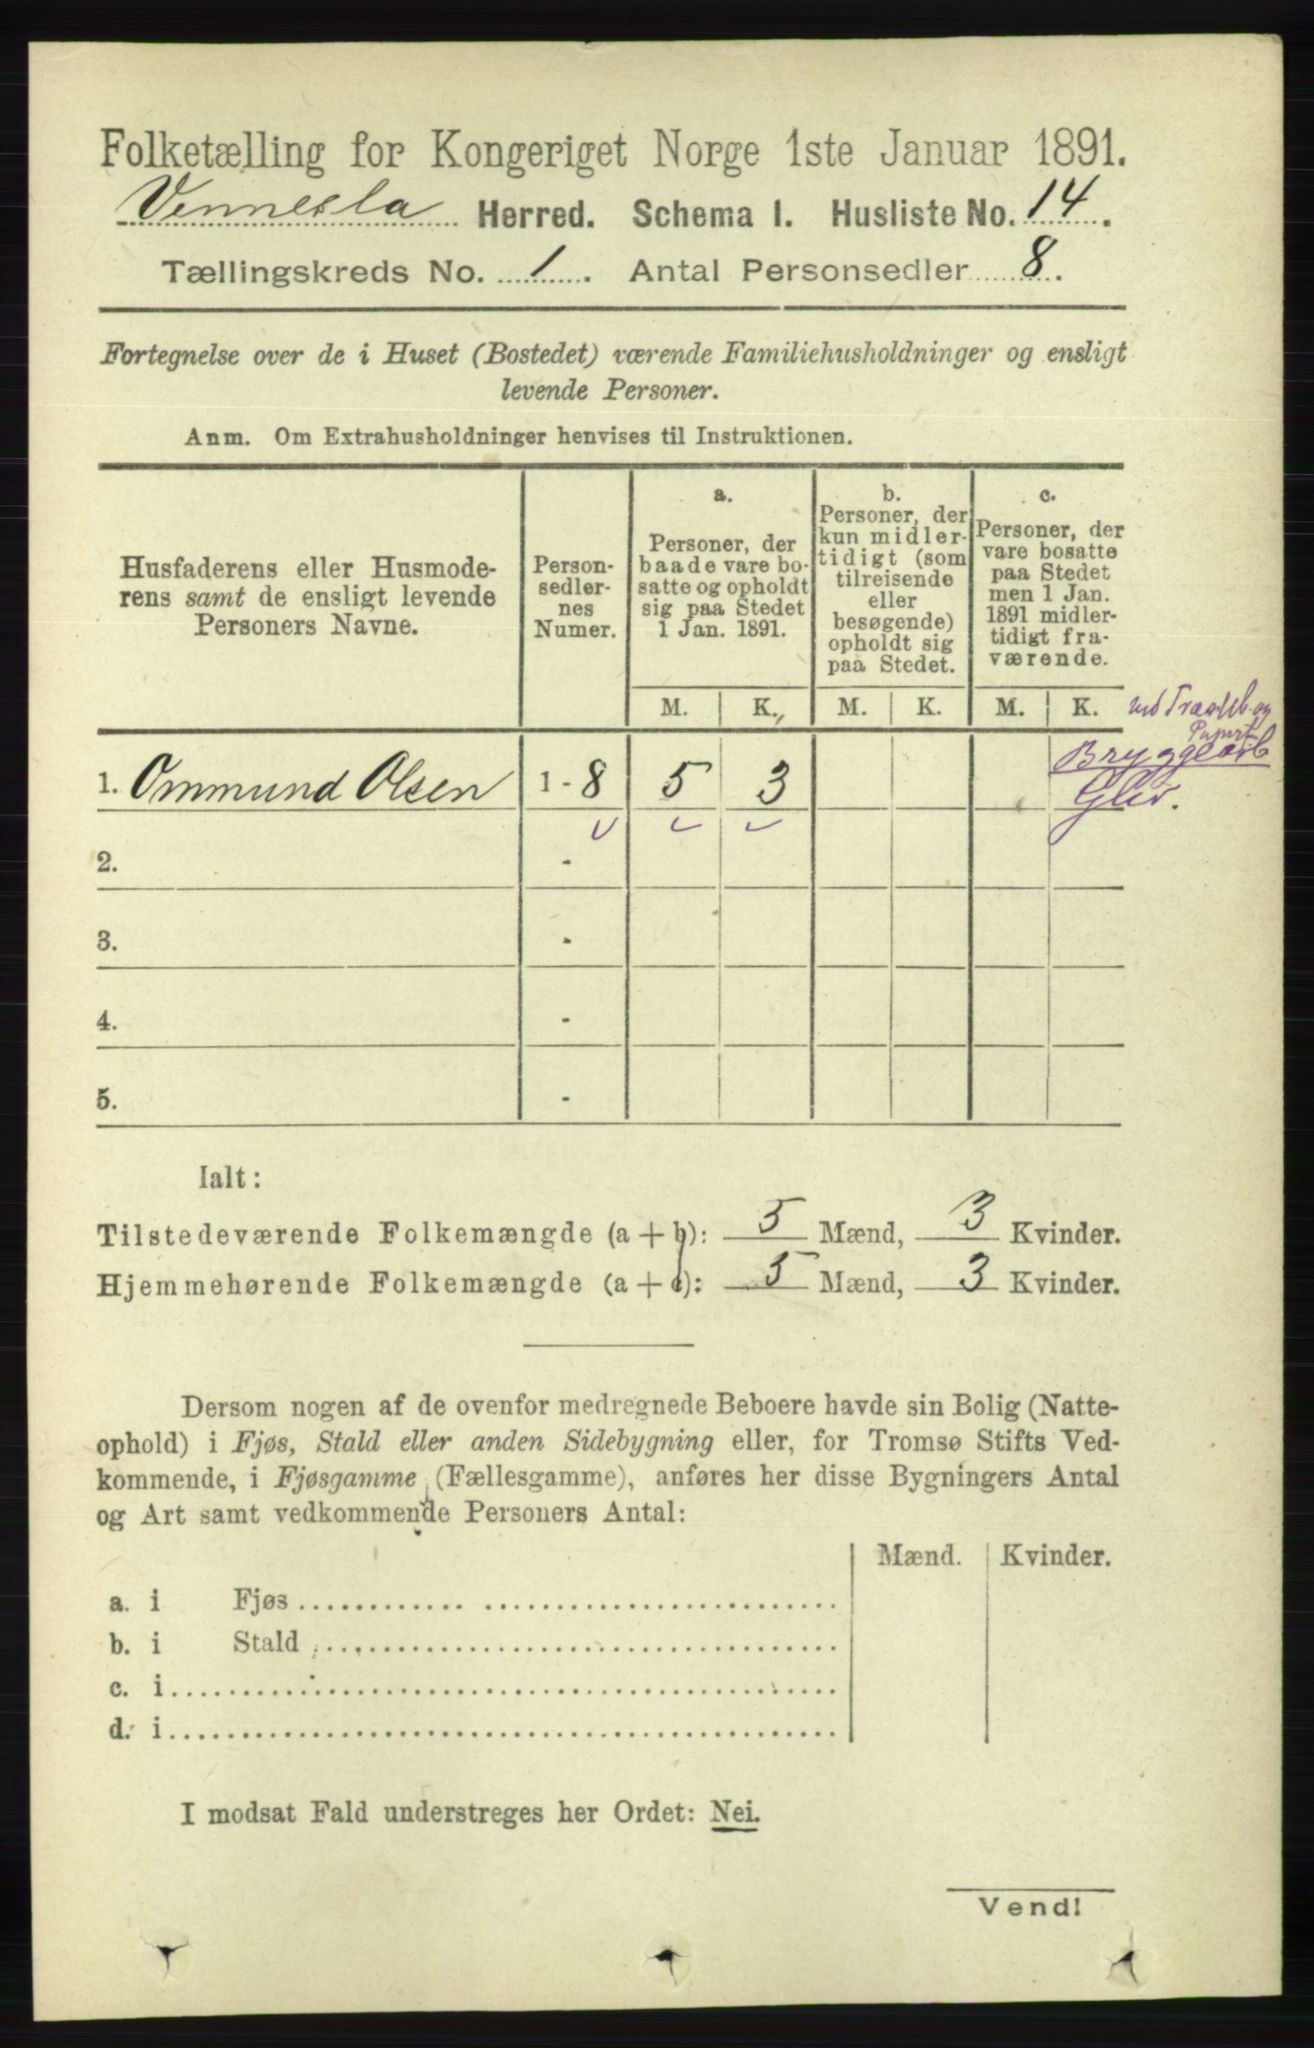 Folketælling for Kongeriget Norge 1ste Januar 1891.
Vennesla Herred. Schema I. Husliste No. 14.
Tællingskreds No. 1. Antal Personsedler 8.
Fortegnelse over de i Huset (Bostedet) værende Familiehusholdninger og ensligt
levende Personer.
Anm. Om Extrahusholdninger henvises til Instruktionen.
Husfaderens eller Husmode-
rens samt de ensligt levende
Personers Navne.
Person-
sedler-
nes
Numer.
a.
Personer, der
baade vare bo-
satte og opholdt
sig paa Stedet
1 Jan. 1891.
b.
Personer, der
kun midler-
tidigt (som
tilreisende
eller
besøgende)
opholdt sig
paa Stedet.
c.
Personer, der
vare bosatte
paa Stedet
men 1 Jan.
1891 midler-
tidigt fra-
værende.
M. K. M. K. M. K.
ved og
Bryggearb
1. Ommund Olsen 1 - 8 5 3
2. -
3. -
4. -
5. -
Ialt:
Tilstedeværende Folkemængde (a + b): 5 Mænd, 3 Kvinder.
Hjemmehørende Folkemængde (a + c): 5 Mænd, 3 Kvinder.
Dersom nogen af de ovenfor medregnede Beboere havde sin Bolig (Natte-
ophold) i Fjøs, Stald eller anden Sidebygning eller, for Tromsø Stifts Ved-
kommende, i Fjøsgamme (Fællesgamme), anføres her disse Bygningers Antal
og Art samt vedkommende Personers Antal:
Mænd. Kvinder.
a. i Fjøs
b. i Stald
c. i
d. i
I modsat Fald understreges her Ordet: Nei.
Vend!